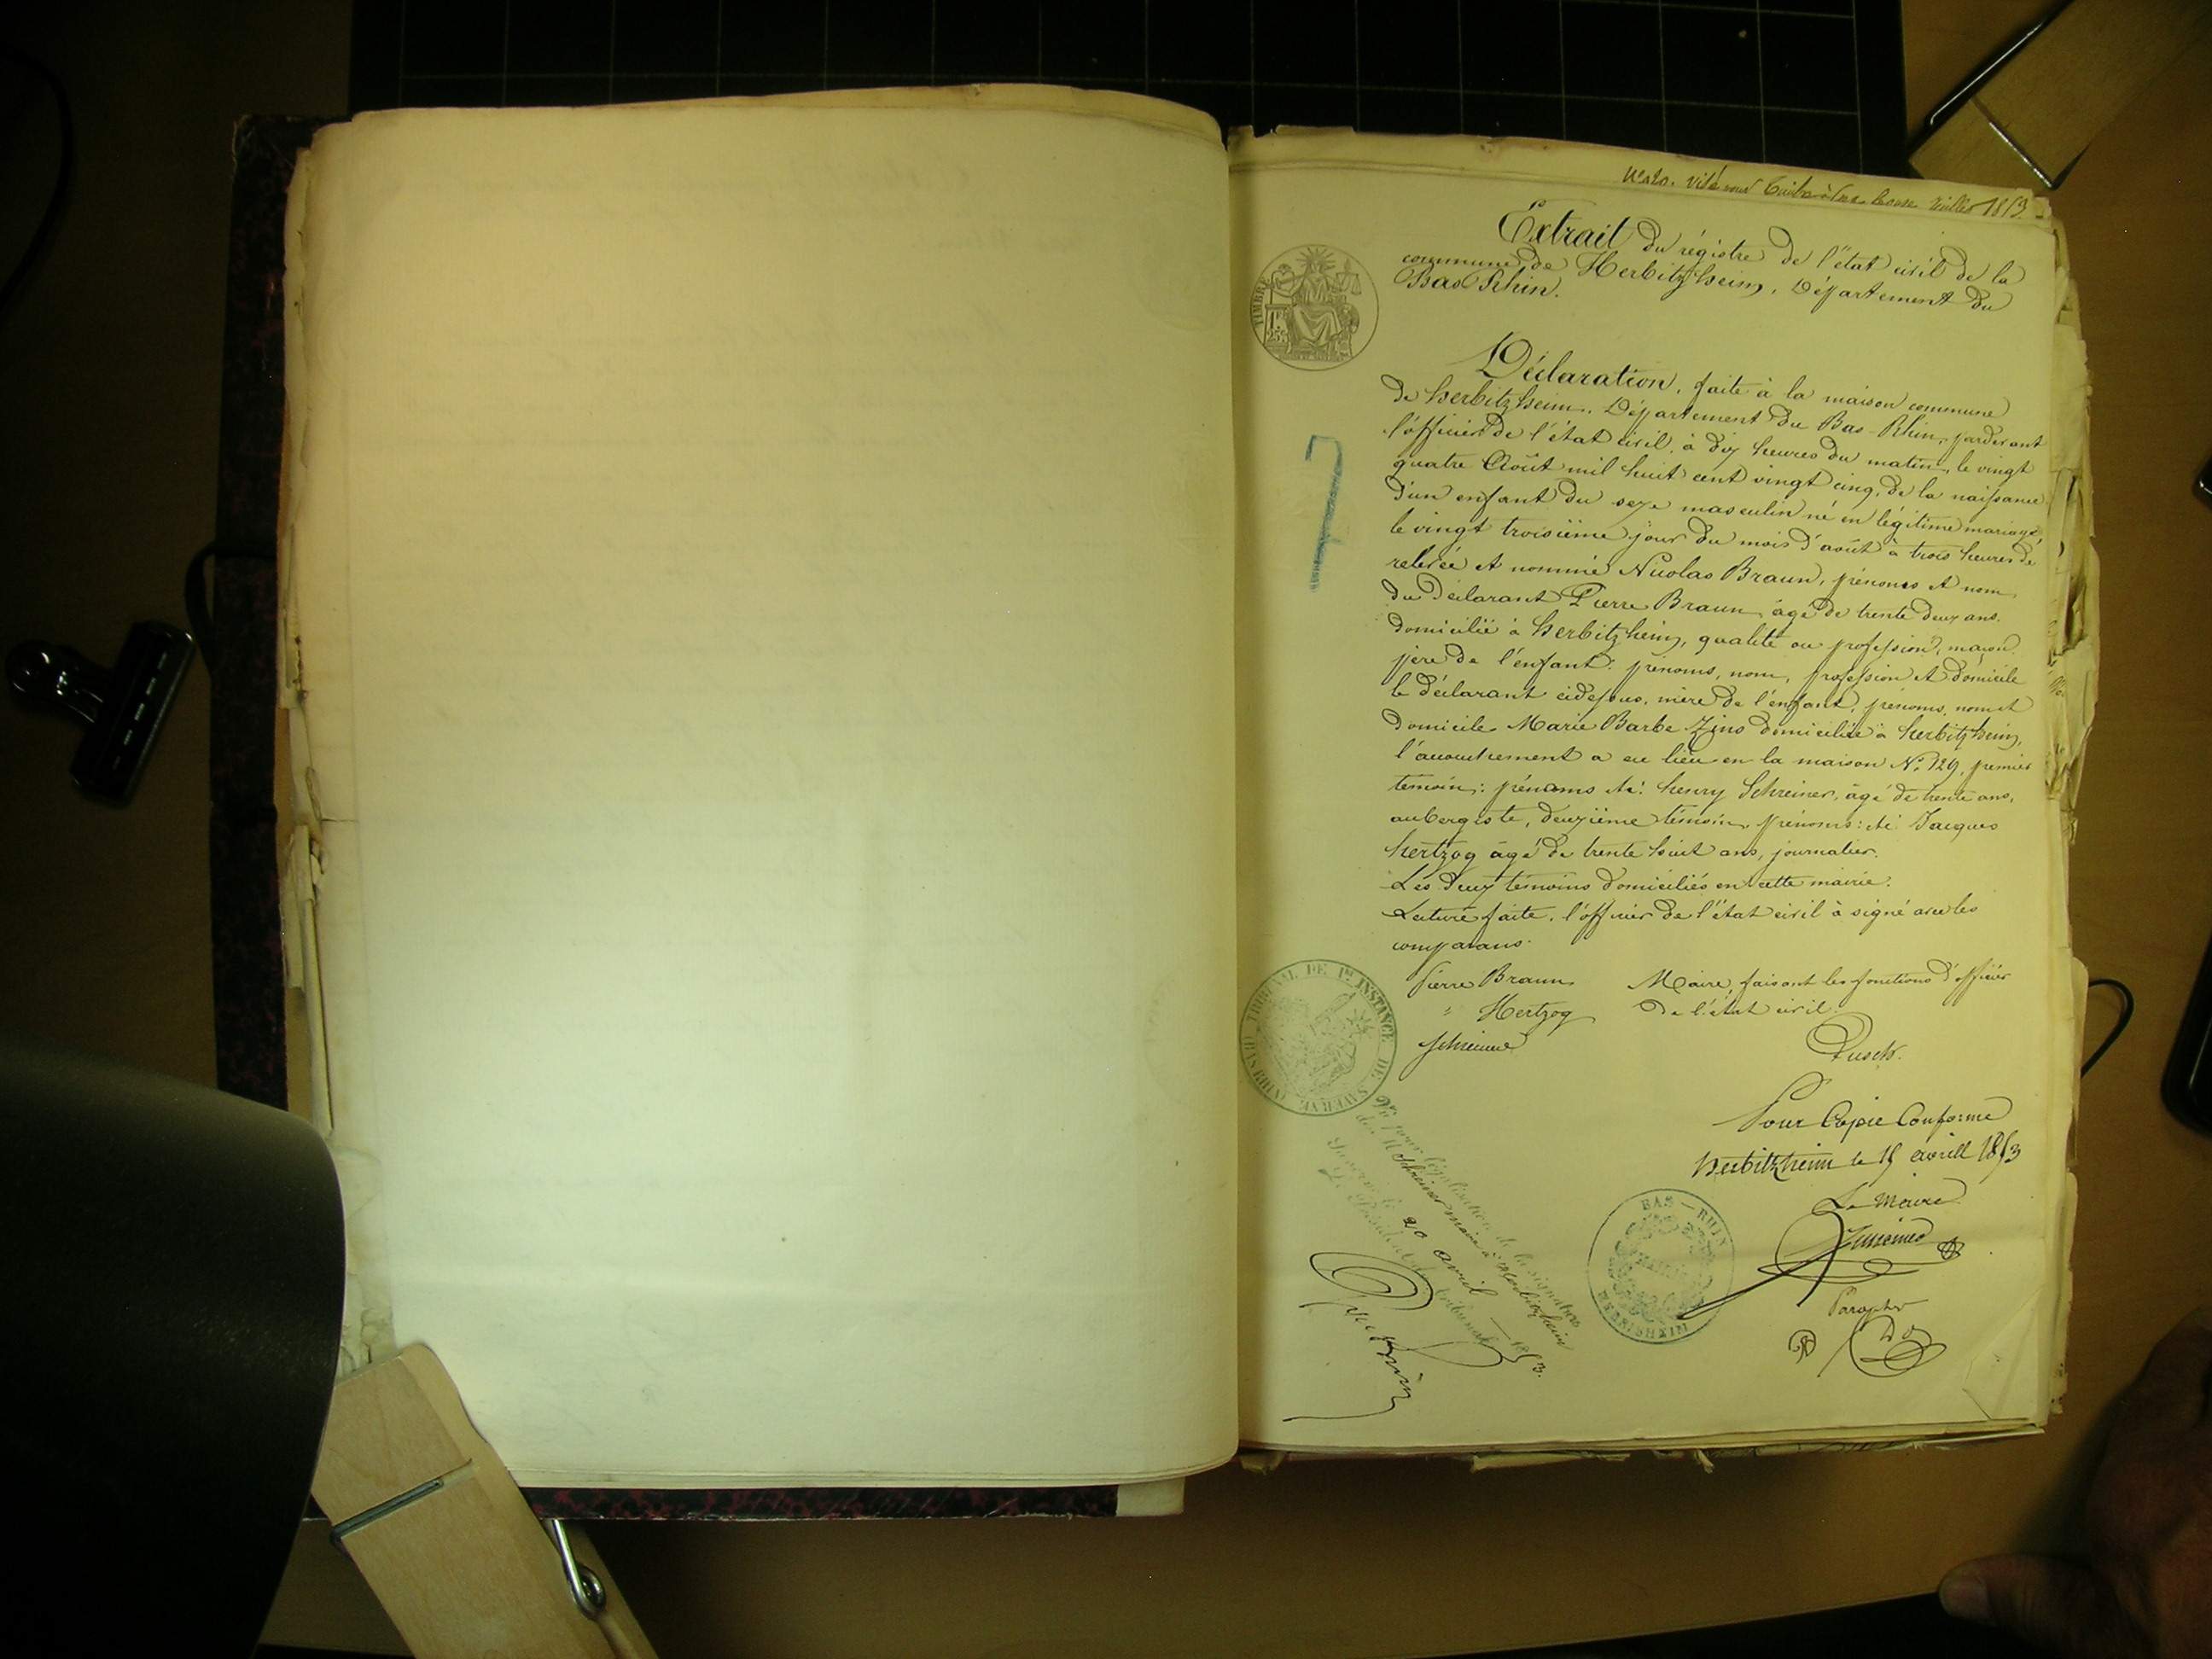 visé pour timbre 1853
Extrait du régistre de l'état civil de la
commune de Herbitzheim, Département du
Bas Rhin.
TIMBRE
Déclaration, faite à la maison commune
de herbitzheim, Département du Bas-Rhin, pardevant
l'officier de l'état civil, à dix heures du matin, le vingt
quatre Août mil huit cent vingt cinq, de la naissance
d'un enfant du sexe masculin né en légitime mariage,
le vingt troisième jour du mois d'août à trois heures de
relevée et nommé Nicolas Braun, prénoms et nom
du déclarant Pierre Braun, âgé de trente deux ans.
domicilié à herbitzheim, qualité ou profession, maçon
père de l'enfant: prénoms, nom, profession et domicile
le déclarant cidessus, mère de l'enfant, prénoms, nom et
domicile Marie Barbe Zins domiciliée à herbitzheim,
l'accouchement a eu lieu en la maison N° 129, premier
témoin: prénoms etc: henry Schreiner, âgé de trente ans,
aubergiste, deuxième témoin, prénoms: etc: Jacques
hertzog âgé de trente huit ans, journalier.
Les deux témoins domiciliés en cette mairie.
Lecture faite, l'officier de l'état civil à signé avec les
comparans.
Pierre Braun
" Hertzog
Schreiner
Maire, faisant les fonctions d'officier
de l'état civil.
7
TRIBUNAL DE 1re INSTANCE DE SAVERNE (BAS RHIN)
Pour Copie Conforme
Herbitzheim le 19 avrill 1853
Le Maire
Vu pour légalisation de la signature
de M Schreiner maire à Herbitzheim
Saverne le 20 avril 1853.
Le Président du tribunal
BAS-RHIN
HERBISHEIM
Paraphe